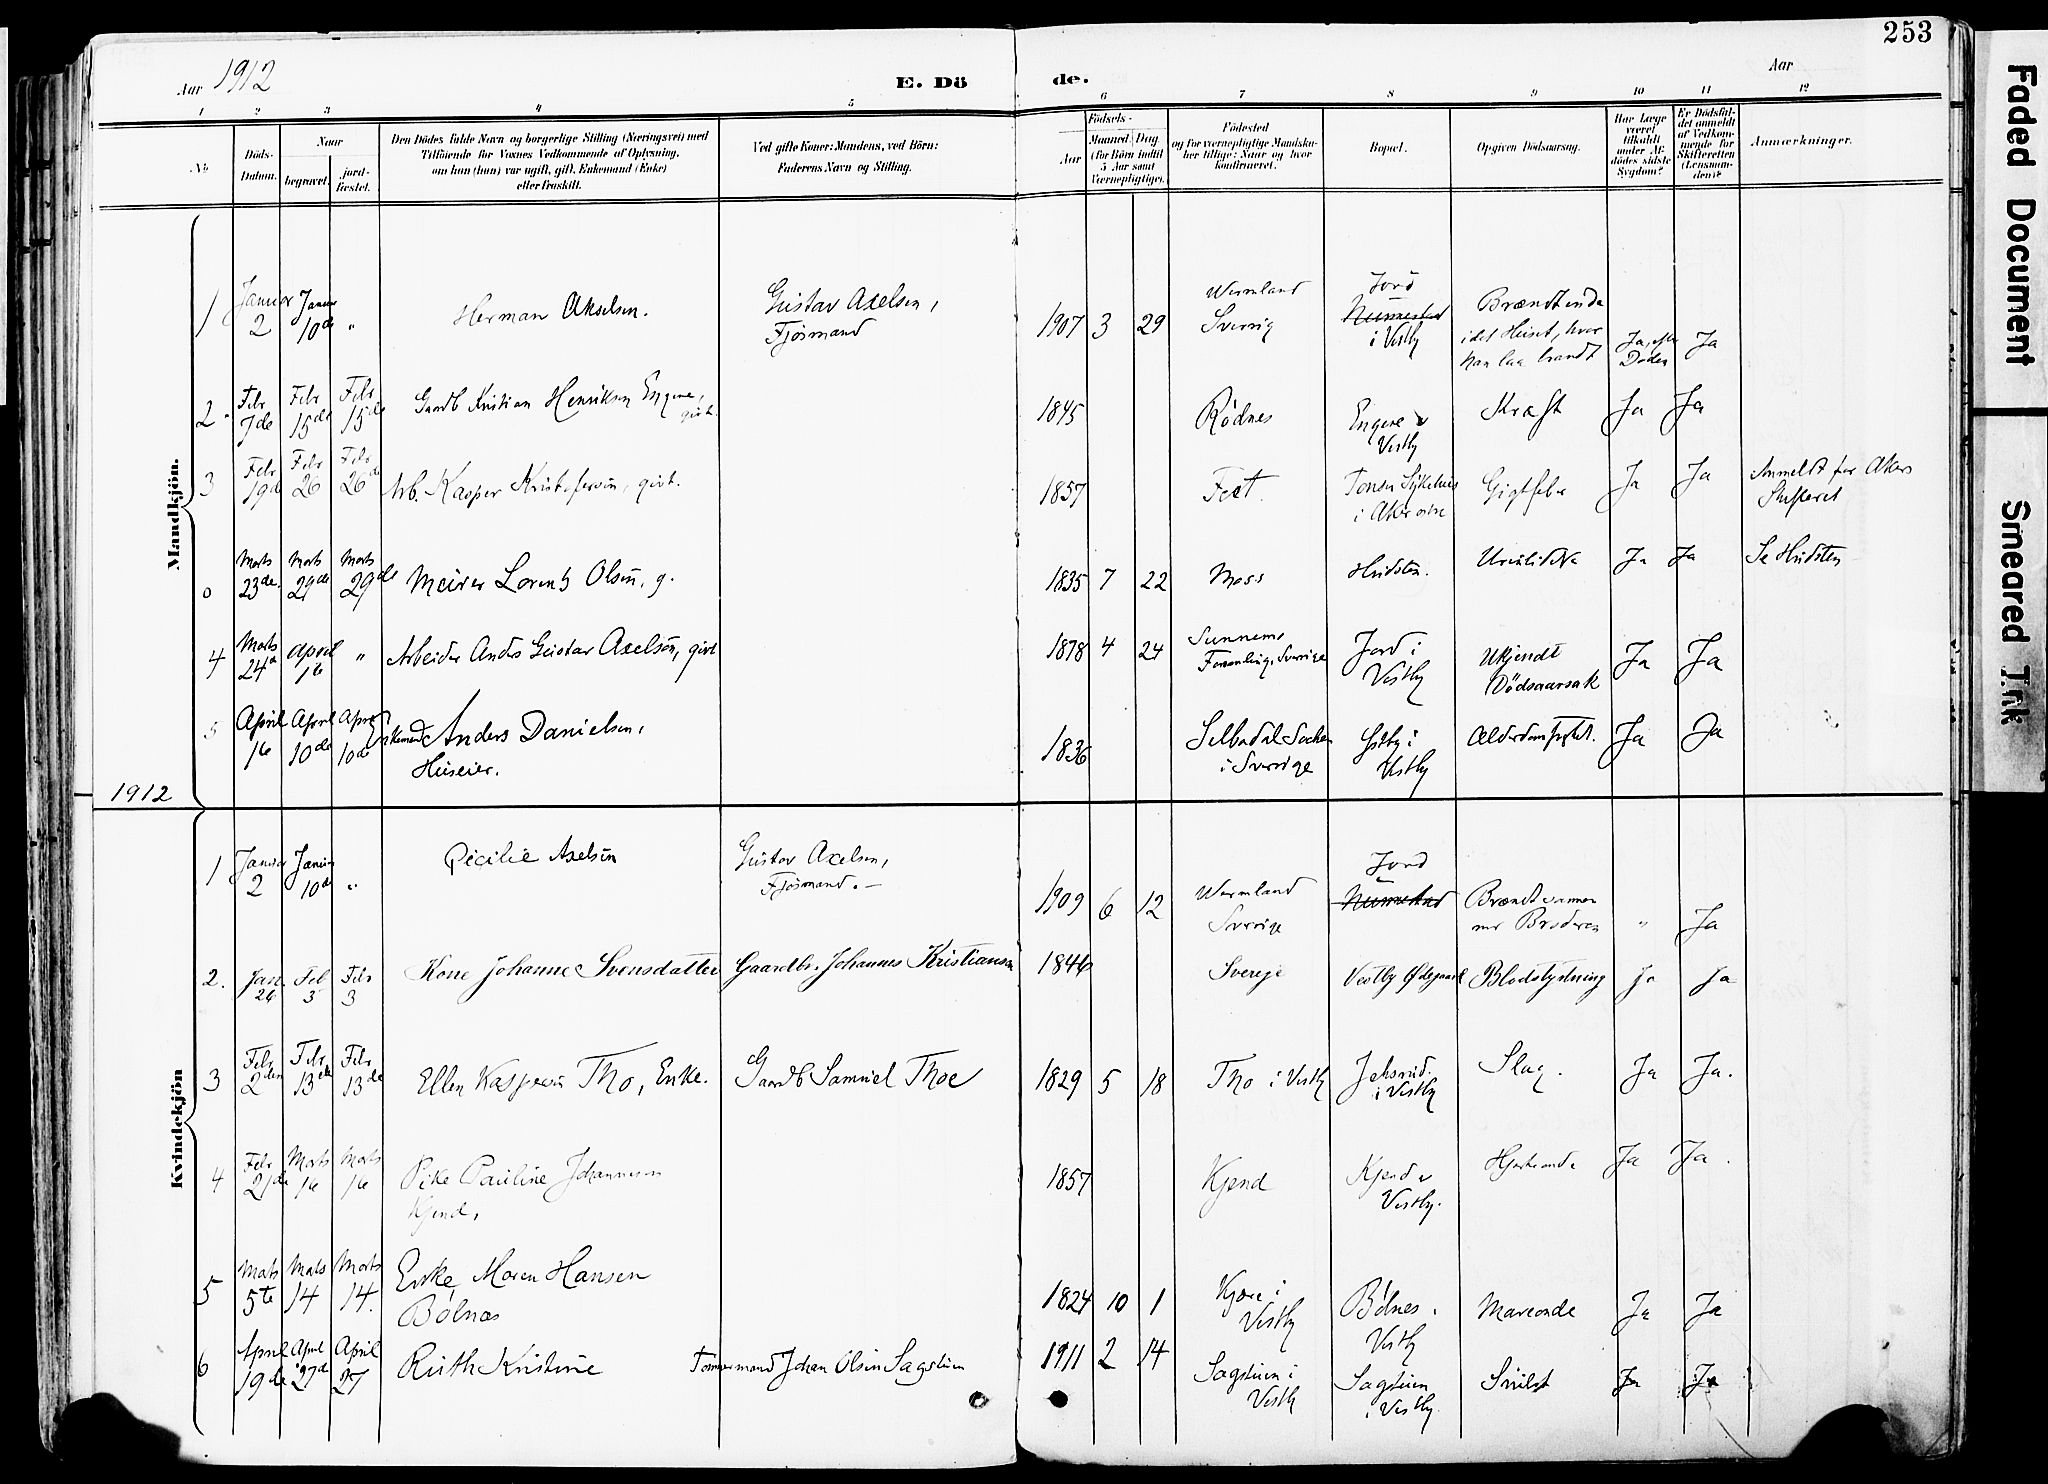 253
Aar 1912
E. Döde.
Aar
1 2 3 4 5 6 7 8 9 10 11 12
No
Döds-Datum.
Naar
begravet.
jord-fæstet.
Den Dödes fulde Navn og borgerlige Stilling (Næringsvei) med
Tilföiende for Voxnes Vedkommende af Oplysning,
om han (hun) var ugift, gift, Enkemand (Enke)
eller fraskilt.
Ved gifte Koner: Mandens, ved Börn:
Faderens Navn og Stilling.
Födsels-
Aar
Maaned. Dag.
(for Börn indtil
5 Aar samt
Værnepligtige).
Födested
og for værnepligtige Mandsku-
ber tillige: Naar og hvor
konfirmeret.
Bopæl.
Opgiven Dödsaarsag.
Har Læge
været
tilkaldt
under Af-
dödes sidste
Sygdom?
Er Dödsfal-
det anmeldt
af Vedkom-
mende for
Skifteretten
(Lensman-
den)?
Anmærkninger.
Mandkjön.
1 Januar 2 Januar 10de " Herman Akselsen. Gustav Axelsen, Fjøsmand 1907 3 29 Wermland Sverrig Jord Nunnestad i Vestby Brændt inde i det Huset, hvor han laa brandt Ja, efter Døden Ja
2 Febr 7de Febr 15de Febr 15de Gaardb Kristian Henriksen Engene, gift. 1845 Rødnes Engene i Vestby Kræft Ja Ja
3 Febr 19de Febr 26 Febr 26de Arb. Kasper Kristofersen, gift. 1857 Feet. Tonsen Sykehus i Aker Gigtfeber Ja Ja Anmeldt for Akers Skifteret
0 Marts 23de. Marts 29de Marts 29de Meirer Lorentz Olsen, g. 1835 7 22 Moss Hvidsten. Ja Ja Se Hvidsten
4 Marts 24de April 16 " Arbeider Anders Gustav Axelsen, gift 1878 4 24 Sunnemo Sverrige Jord i Vestby Ukjendt Dødsaarsak Ja Ja
5 April 16 April 10de April 10de Enkemand Anders Danielsen, Huseier. 1836 Selbodal Socken i Sverrige Vestby Alderdomssvækkelse. Ja Ja
1912
Kvindekjön
1 Januar 2 Januar 10de " Cicilie Axelsen Gustav Axelsen, Fjøsmand. 1909 6 12 Wermland Sverrige Jord Nunnestad Brændt sammen med Broderen " Ja
2. Jan. 26 Feb 3 Febr 3 Kone Johanne Svensdatter Gaardbr. Johannes Kristiansen 1846 Sverige Vestby Ødegaard Blodstyrtning Ja Ja
3 Febr 2den Febr 13de Febr 13de Ellen Kaspersen Tho, Enke. Gaardb Samuel Thoe 1829 5 18 Tho i Vestby i Vestby Slag. Ja Ja.
4 Febr 21de Marts 16 Marts 16 Pike Pauline Johannesen Kjend, 1857 Kjend Kjend i Vestby. Hjerteonde Ja Ja.
5 Marts 5te Marts 14 Marts 14. Enke, Maren Hansen Bølnæs 1824 10 1 Kjære i Vestby Bølnes i Vestby Maveonde Ja Ja
6 April 19de April 27de April 27 Ruth Kristine Tømmermand Johan Olsen Sagstuen 1911 2 14 Sagstuen i Vestby Sagstuen i Vestby. Svulst Ja Ja
Faded Document
Smeared Ink